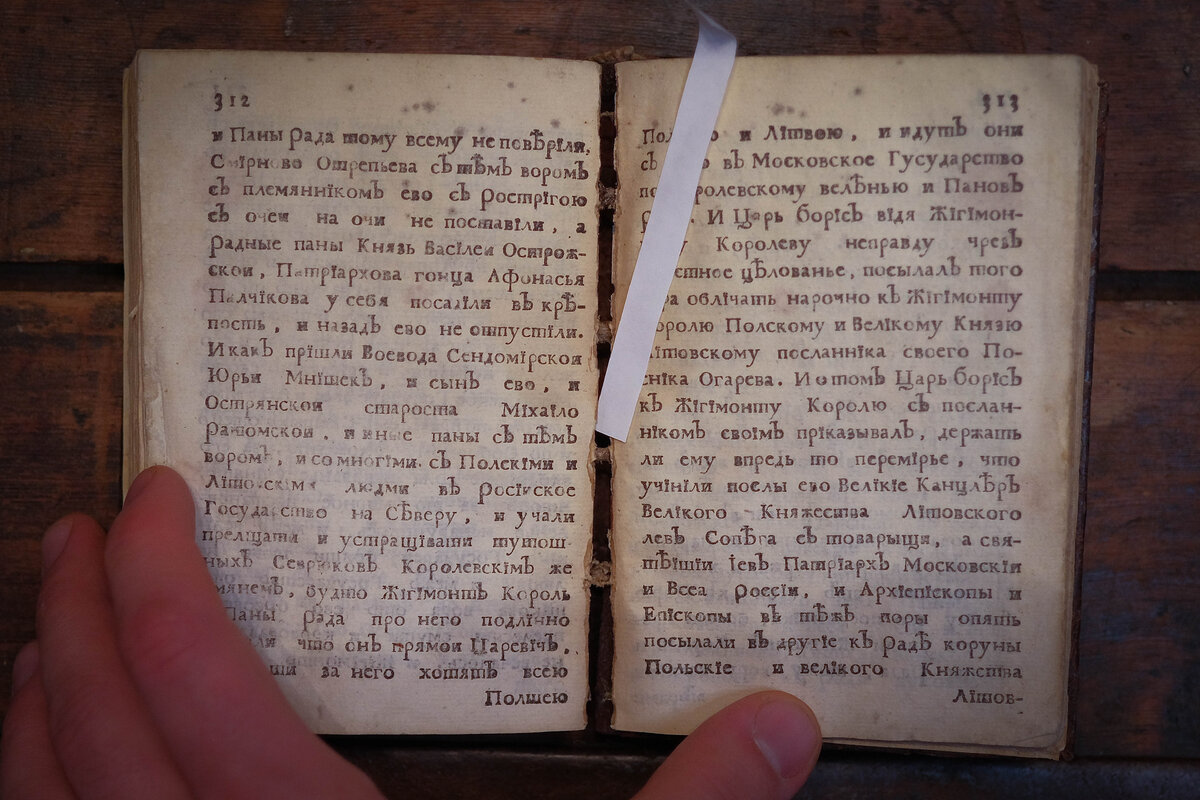 312
и Паны рада тому всему не повѣрїли,
Смїрново Отрепьева сЪ тѣмЪ воромЪ
сЪ племяннїкомЪ ево сЪ Рострїгою
сЪ очеи на очи не поставїли, а
радные паны Князь Васїлеи Острож-
скои, Патрїархова гонца Афонасья
Палчїкова у себя посадїли вЪ крѣ-
пость, и назадЪ ево не отпустїли.
И какЪ прїшли Воевода Сендомїрскои
Юрьи МнїшекЪ, и сынЪ ево, и
Острянскои староста Мїхаїло
Ратомскои, и иные паны сЪ тѣмЪ
воромЪ, и со многїми сЪ Полскїми и
Лїтовскїми людми вЪ росїиское
Государство на Сѣверу, и учали
прелщати и устращївати тутош-
ныхЪ СеврюковЪ КоролевскїмЪ же
имянемЪ, будто ЖїгїмонтЪ Король
Паны рада про него подлїчно
что онЪ прямои ЦаревїчЪ,
за него хотятЪ всею
Полшею
313
и Лїтвою, и идутЪ они
сЪ вЪ Московское Гусударство
велѣнью и ПановЪ
И Царь борїсЪ вїдя Жїгїмон-
Королеву неправду чрезЪ
цѣлованье, посылалЪ того
облїчать нарочно кЪ Жїгїмонту
Королю Полскому и Велїкому Князю
Лїтовскому посланнїка своего По-
снїка Огарева. И о томЪ Царь борїсЪ
кЪ Жїгїмонту Королю сЪ послан-
нїкомЪ своїмЪ прїказывалЪ, держать
ли ему впредь то перемїрье, что
учїнїли послы ево Велїкїе КанцлѣрЪ
Велїкого Княжества Лїтовского
левЪ Сопѣга сЪ товарыщи, а свя-
тѣїшїи їевЪ ПатрїархЪ Московскїи
и Всеа россїи, и Архїепїскопы и
Епїскопы вЪ тѣжЪ поры опять
посылали вЪ другїе кЪ Радѣ коруны
Польскїе и велїкого Княжества
Лїтов-